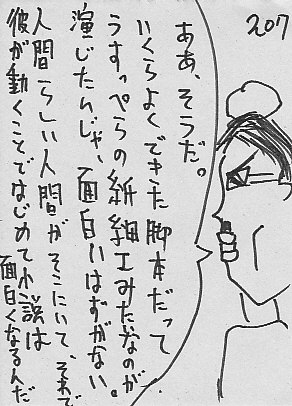 207
ああ、そうだ。
いくらよくできた脚本だって
うすっぺらの紙細工みたなのが
演じたんじゃ、面白いはずがない。
人間らしい人間がそこにいて、それで
彼が動くことではじめて小説は
面白くなるんだ